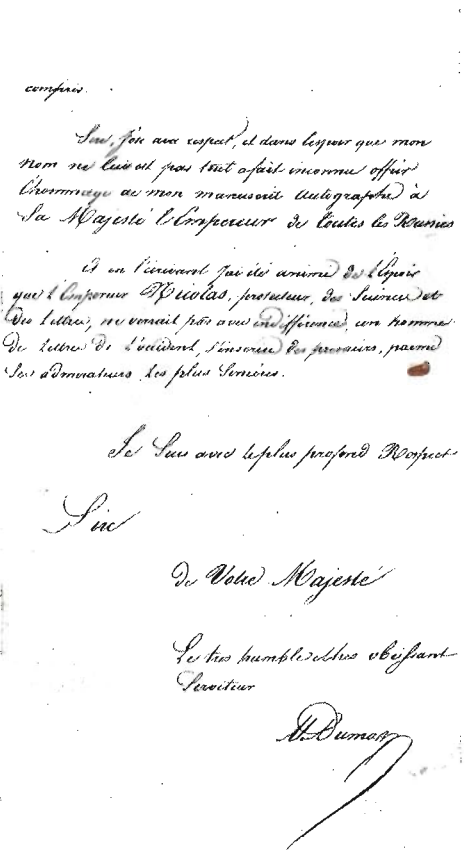 compris.
Sire, j'ose avec respect, et dans l'espoir que mon
nom ne lui est pas tout a fait inconnu offrir
l'hommage de mon manuscrit autographe à
Sa Majesté l'Empereur de toutes les Russies
et en l'écrivant j'ai été animé de l'Espoir
que l'Empereur Nicolas, protecteur, des Sciences et
des lettres, ne verrait pas avec indifférence, un homme
de lettres de l'occident, s'inscrire des premiers, parmi
ses admirateurs les plus sincères.
Je Suis avec le plus profond Respect
Sire
de Votre Majesté
Le tres humble et tres obeissant
Serviteur
Al. Dumas